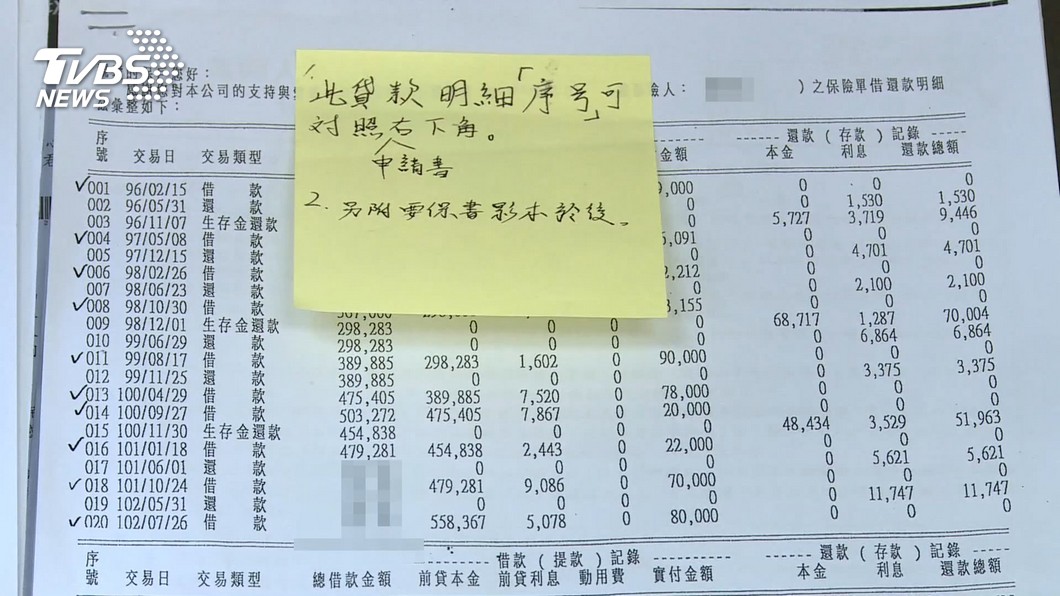 TVBS
NEWS
好：
對本公司的支持與
險人： ）之保險單借還款明細
彙整如下：
1. 此貸款明細「序号」可
対照右下角。
申請書
2. 另附要保書影本於後。
------ 還款（存款）記錄 ------
序號 交易日 交易類型 金額 本金 利息 還款總額
✓001 96/02/15 借 款 9,000 0 0 0
002 96/05/31 還 款 0 0 1,530 1,530
003 96/11/07 生存金還款 0 5,727 3,719 9,446
✓004 97/05/08 借 款 5,091 0 0 0
005 97/12/15 還 款 0 0 4,701 4,701
✓006 98/02/26 借 款 2,212 0 0 0
007 98/06/23 還 款 0 0 2,100 2,100
✓008 98/10/30 借 款 3,155 0 0 0
009 98/12/01 生存金還款 298,283 0 0 0 0 68,717 1,287 70,004
010 99/06/29 還 款 298,283 0 0 0 0 0 6,864 6,864
✓011 99/08/17 借 款 389,885 298,283 1,602 0 90,000 0 0 0
012 99/11/25 還 款 389,885 0 0 0 0 0 3,375 3,375
✓013 100/04/29 借 款 475,405 389,885 7,520 0 78,000 0 0 0
✓014 100/09/27 借 款 503,272 475,405 7,867 0 20,000 0 0 0
015 100/11/30 生存金還款 454,838 0 0 0 0 48,434 3,529 51,963
✓016 101/01/18 借 款 479,281 454,838 2,443 0 22,000 0 0 0
017 101/06/01 還 款 0 0 0 0 0 5,621 5,621
✓018 101/10/24 借 款 479,281 9,086 0 70,000 0 0 0
019 102/05/31 還 款 0 0 0 0 0 11,747 11,747
✓020 102/07/26 借 款 558,367 5,078 0 80,000 0 0 0
---------- 借款（提款）記錄 ---------- ------ 還款（存款）記錄 ------
序號 交易日 交易類型 總借款金額 前貸本金 前貸利息 動用費 實付金額 本金 利息 還款總額